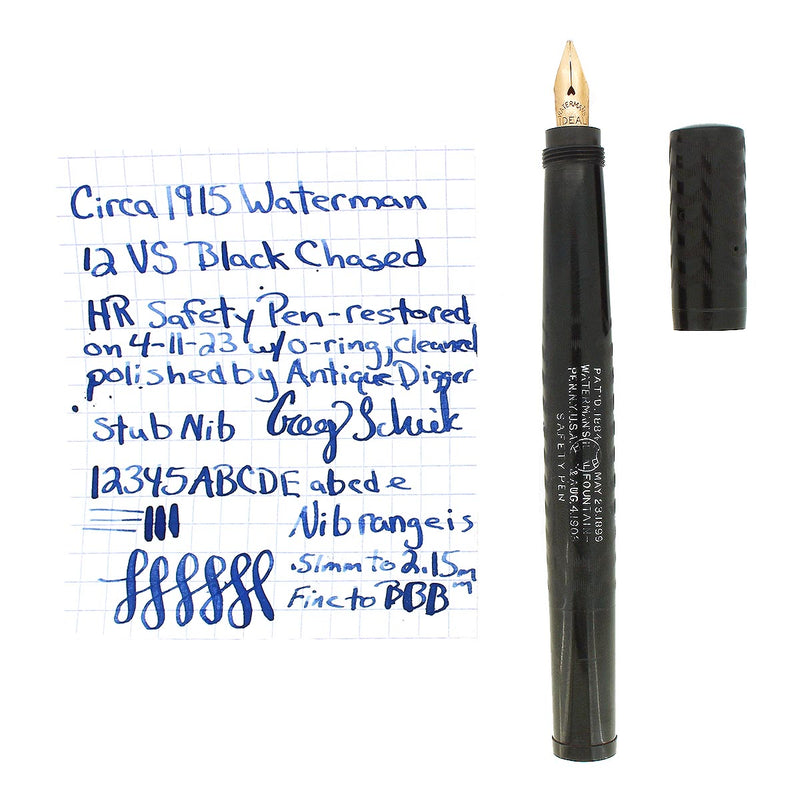 Circa 1915 Waterman
12 VS Black Chased
HR Safety Pen-restored
on 4-11-23 w/o-ring, cleaned
polished by Antique Digger
Stub Nib Greg Schick
12345 ABCDE abcde
Nib range is
.51mm to 2.15mm
Fine to BBB
WATERMAN'S
IDEAL
PAT'D. 1884 & MAY 23.1899
WATERMAN'S FOUNTAIN
PEN,N.Y.U.S.A. & AUG.4,1903
SAFETY PEN